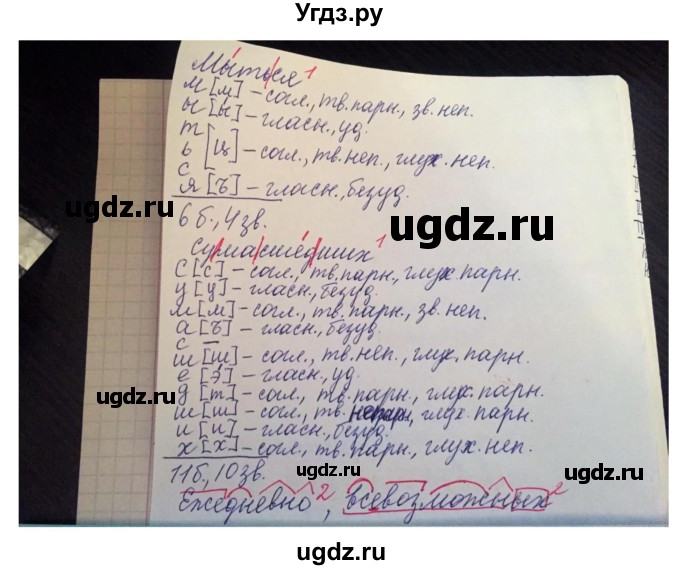 Угдз.ру
Мыться 1
м [м] – согл., тв. парн., зв. неп.
ы [ы] – гласн., уд.
т
ь [ц] – согл., тв. неп., глух. неп.
с
я [ъ] – гласн., безуд.
6 б., 4 зв.
ugdz.ru
ugdz.ru
Сумасшедших 1
с [с] – согл., тв. парн., глух. парн.
у [у] – гласн., безуд.
м [м] – согл., тв. парн., зв. неп.
а [ъ] – гласн., безуд.
с –
ш [ш] – согл., тв. неп., глух. парн.
е [э] – гласн., уд.
ugdz.ru
д [т] – согл., тв. парн., глух. парн.
ugdz.ru
ш [ш] – согл., тв. непарн., глух. парн.
и [и] – гласн., безуд.
х [х] – согл., тв. парн., глух. неп.
11 б., 10 зв.
ugdz.ru
ugdz.ru
Ежедневно 2, всевозможных 2
ugdz.ru